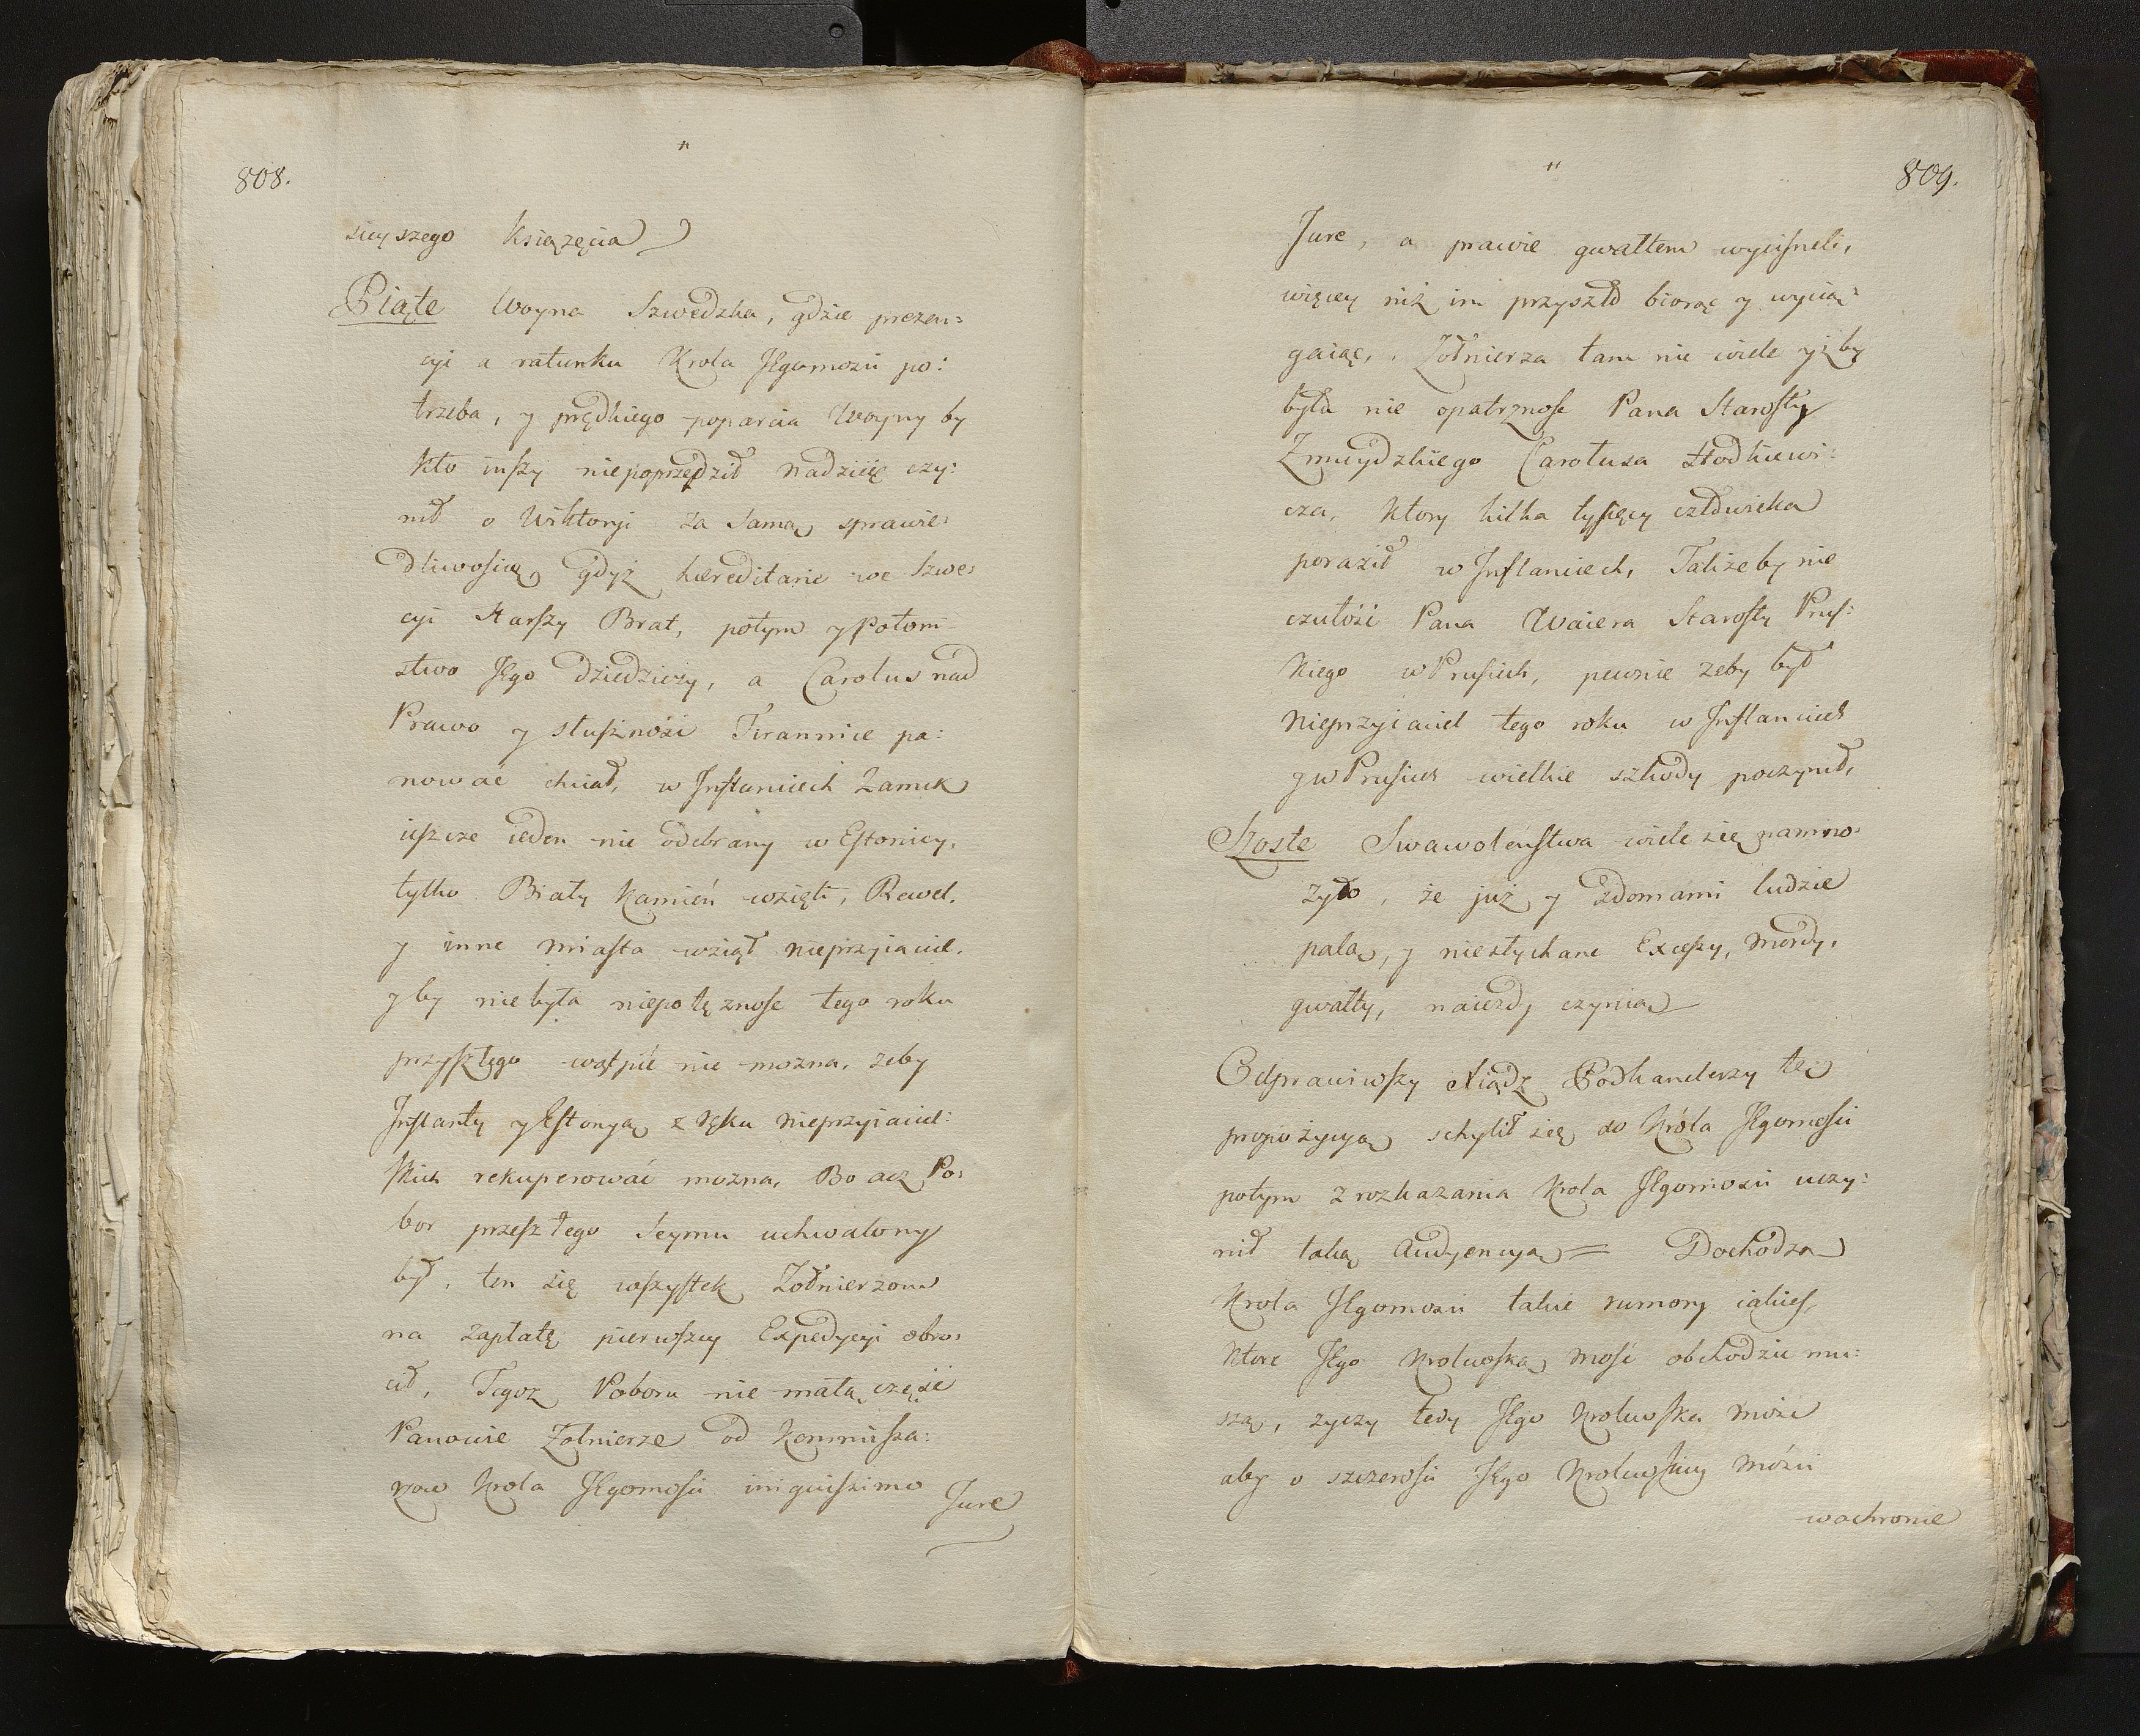 808.
"
sieyszego Książęcia
Piąte Woyna Szwedzka, gdzie prezen:
cyi a ratunku Krola JEgomosci po:
trzeba, y prędkiego poparcia Woyny by
kto inszy niepoprzedził nadzieię czy:
nił o Wiktoryi za samą sprawie:
dliwością gdyż haereditarie we Szwe:
cyi Starszy Brat, potym y Potom:
stwo JEgo dziedziczy, a Carolus nad
Prawo y słusznośći Tirannice pa:
nować chciał, w Inflanciech Zamek
ieszcze ieden nie odebrany w Estoniey,
tylko Biały Kamień wzięti, Rewel,
y inne Miasta wziął nieprzyiaciel.
y by nie była niepotężnosc tego roku
przyszłego wątpić nie można, zeby
Inflanty y Estonyą z ręku nieprzyiaciel:
skich rekuperować można, Bo acz Po:
bor przeszłego Seymu uchwalony
był, ten się wszystek Zołnierzom
na zapłatę pierwszey Expedycyi obro:
cił, Tegoz Poboru nie małą część
Panowie Zołnierze od Kommissa:
rzow Krola JEgomosci iniquissimo
Jure
"
809.
Jure, a prawie gwałtem wycisneli,
więcey niż im przyszło biorąc y wycią:
gaiąc, Zołnierza tam nie wiele y iż by
była nie opatrznosc Pana Starosty
Zmuydzkiego Carolusa Hodkiewi:
cza, ktory kilka tysięcy człowieka
poraził w Inflanciech, Takżeby nie
czułość Pana Waiera Starosty Prus:
kiego w Prusiech, pewnie zeby był
nieprzyiaciel tego roku w Inflanciech
y w Prusiech wielkie szkody poczynił,
Szoste Swawolenstwa wiele się namno:
żyło, że już y z domami ludzie
palą, y niesłychane Excessy, Mordy,
gwałty, naiezdy czynią
Odprawiwszy Xiądz Podkanclerzy tę
propozycyą schylił się do Króla JEgomosci
potym z rozkazania Krola JEgomosci uczy:
nił taką Audyencyą = Dochodzą
Krola JEgomosci takie rumory iakies,
ktore JEgo Krolewską Mość obchodzić mu:
szą, zyczy tedy JEgo Krolewska Mość
aby o szczerosci JEgo Krolewskiey Mości
wochronie